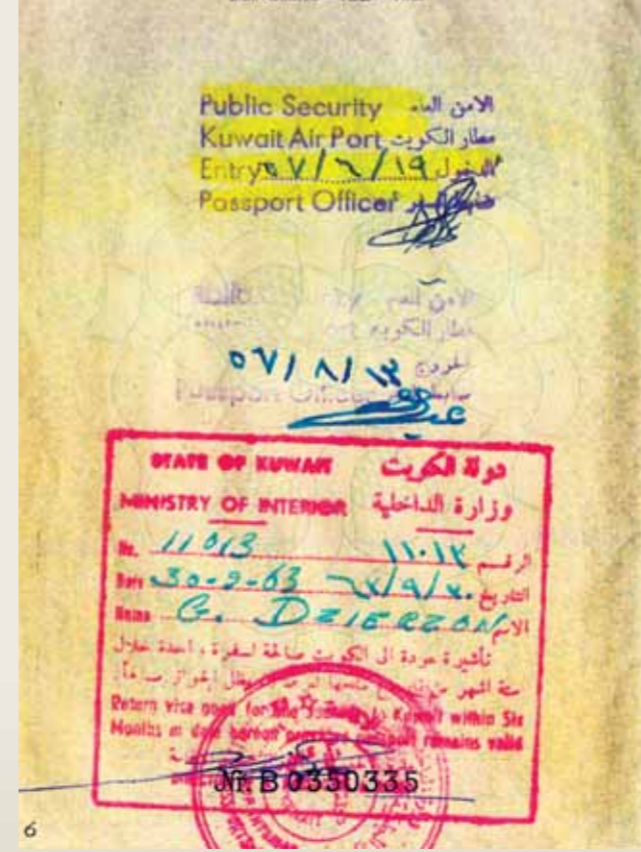 Public Security الامن العام
Kuwait Air Port مطار الكويت
Entry ٥٧/٦/١٩ الدخول
Passport Officer
الامن العام
مطار الكويت
٥٧/٨/١٣ الخروج
Passport Officer
STATE OF KUWAIT دولة الكويت
MINISTRY OF INTERIOR وزارة الداخلية
No. 11013 ١١٠١٣ الرقم
Date 30-9-63 ٦٣/٩/٣٠ التاريخ
Name G. DZIERZON الاسم
تأشيرة عودة الى الكويت صالحة لسفرة واحدة خلال
ستة اشهر من
Return visa good for to Kuwait within Six
Months remains valid
Nr. B 0350335
6